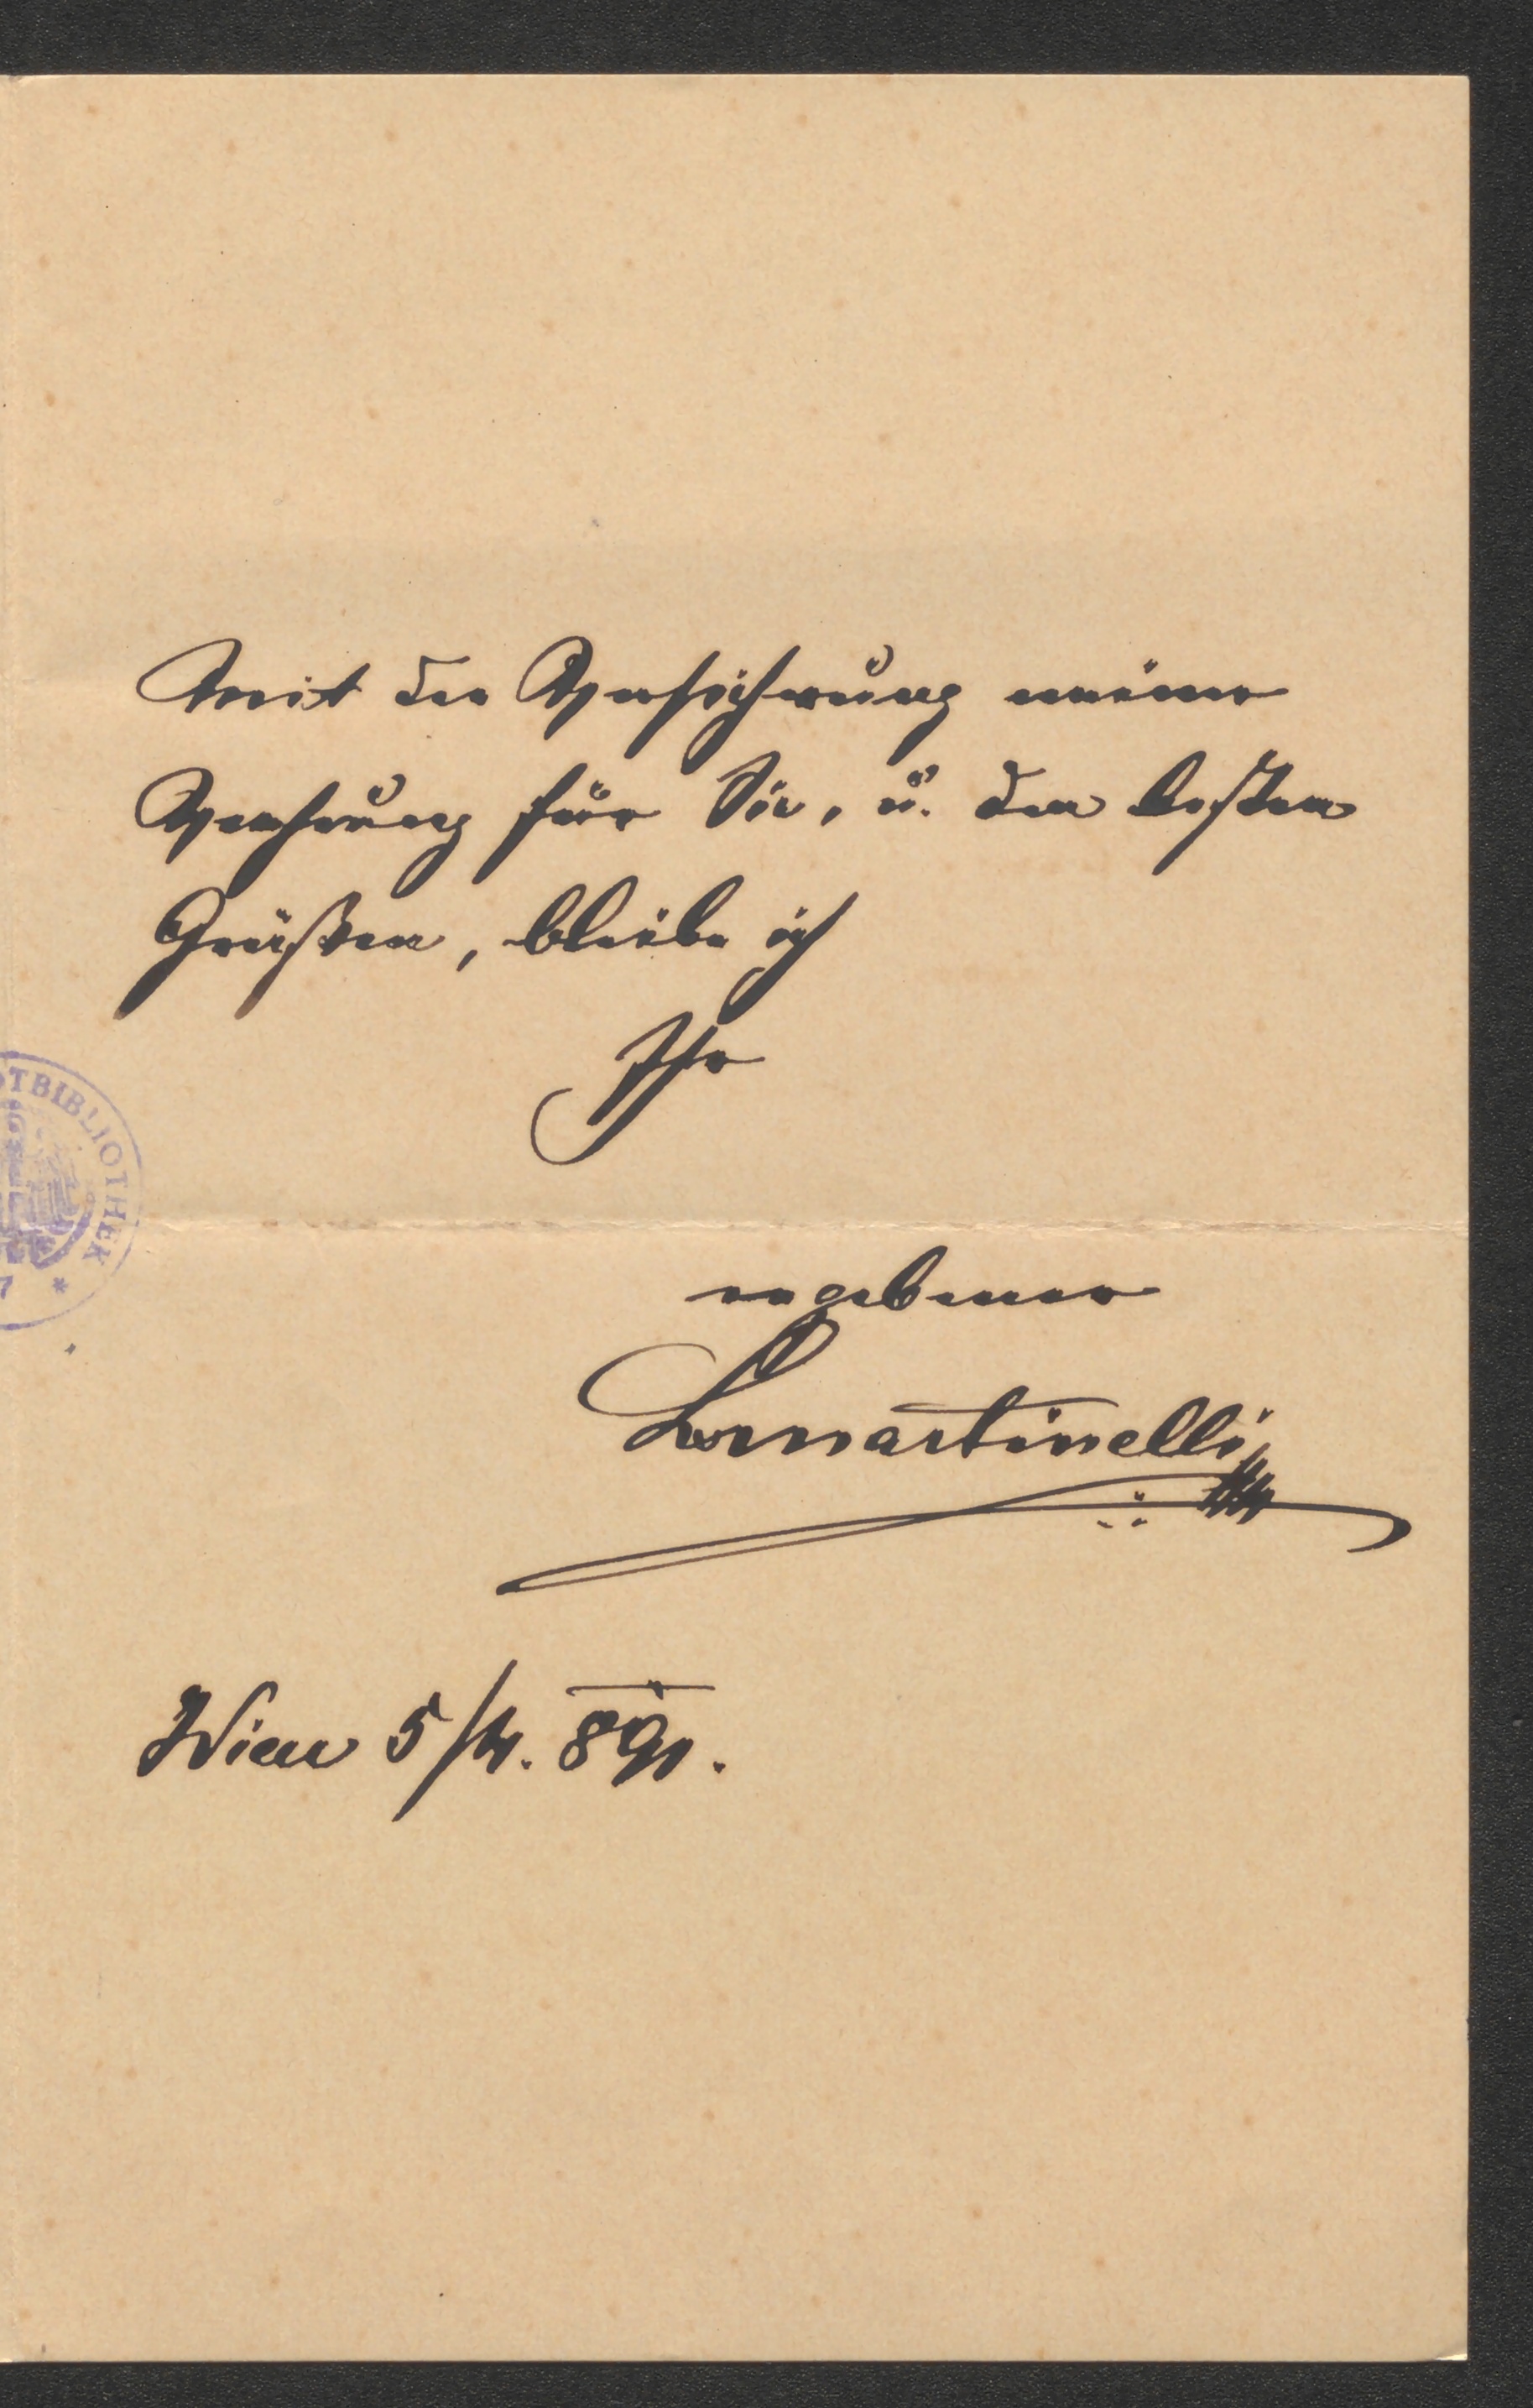 Mit der Versicherung meiner
Verehrung für Sie, u. den besten
Grüßen, bleibe ich
Ihr
TBIBLIOTHEK
ergebener
LMartinelli
Wien 5/4. 891.